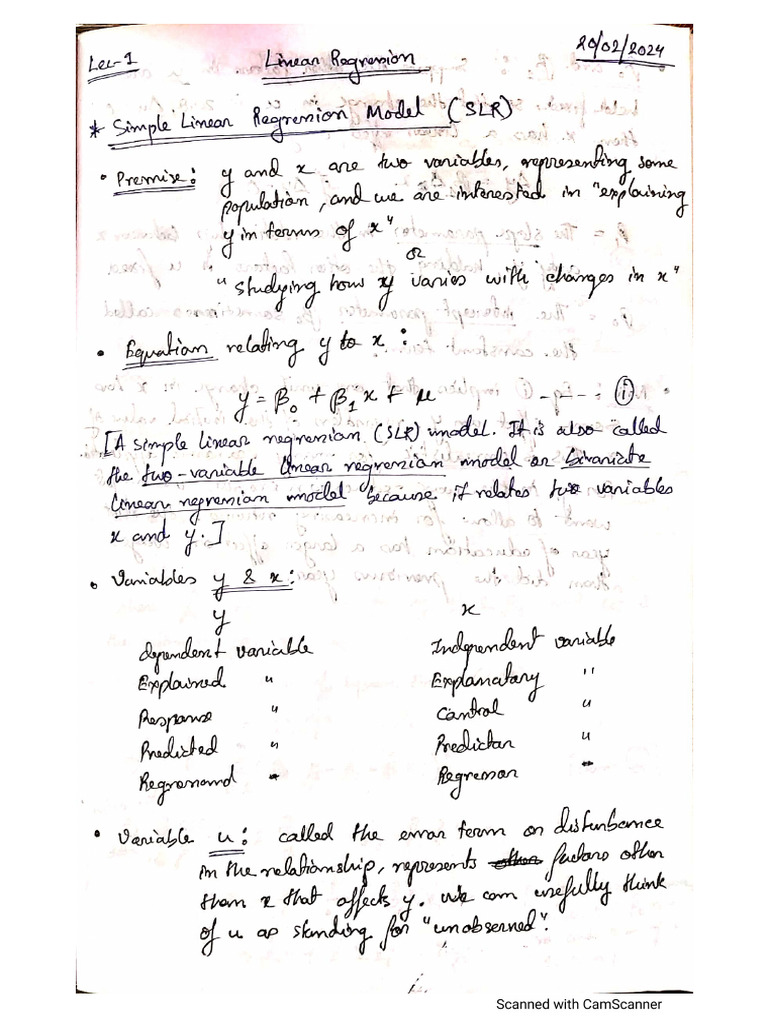 Lec-1
Linear Regression
20/02/2024
* Simple Linear Regression Model (SLR)
• Premise: y and x are two variables, representing some
population, and we are interested in "explaining
y in terms of x"
or
"studying how y varies with changes in x"
• Equation relating y to x :
y = β₀ + β₁ x + u - - - (i)
[A simple linear regression (SLR) model. It is also called
the two-variable linear regression model or bivariate
linear regression model because it relates two variables
x and y.]
• Variables y & x:
y x
dependent variable Independent variable
Explained " Explanatory "
Response " Control "
Predicted " Predictor "
Regressand " Regressor "
• Variable u: called the error term or disturbance
in the relationship, represents other factors other
than x that affects y. We can usefully think
of u as standing for "unobserved".
Scanned with CamScanner